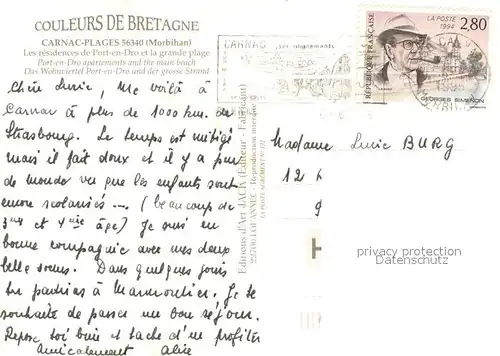 COULEURS DE BRETAGNE
CARNAC-PLAGES 56340 (Morbihan)
Les résidences de Port-en-Dro et la grande plage
Port-en-Dro apartments and the main beach
Das Wohnviertel Port-en-Dro und der grosse Strand
Chère Lucie, me voilà à
Carnac à plus de 1000 km. de
Strasbourg. Le temps est mitigé
mais il fait doux et il y a peu
de monde vu que les enfants sont
encore scolarisés ... (beaucoup de
3me et 4me âge) Je suis en
bonne compagnie avec mes deux
belle soeurs. Dans quelques jours
tu partiras à Marmoutier. Je te
souhaite de passer un bon séjour.
Repose toi bien et tache d'en profiter
Amicalement Alice
Editions d'Art JACK (Editeur - Fabricant)
22790 LOUANNEC - Reproduction interdite
CARNAC
Les alignements
RÉPUBLIQUE FRANÇAISE
LA POSTE
1994
2,80
GEORGES SIMENON
Madame Lucie BURG
12
9
privacy protection
Datenschutz